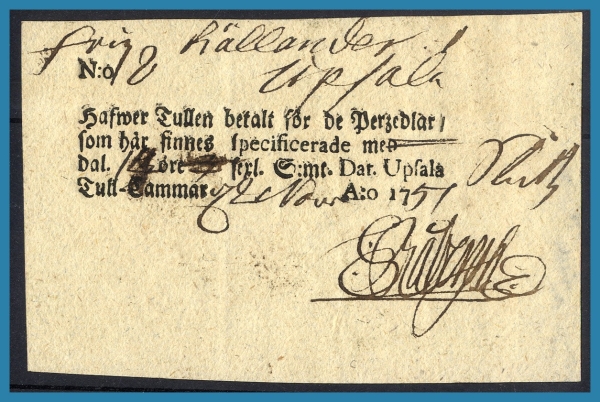 Källander
N:o 8 Upsala
Hafwer Tullen betalt för de Perzedlar/
som här finnes specificerade med
dal. öre sexl. S:mt. Dat. Upsala
Tull-Cammar 2 Nov A:o 1751